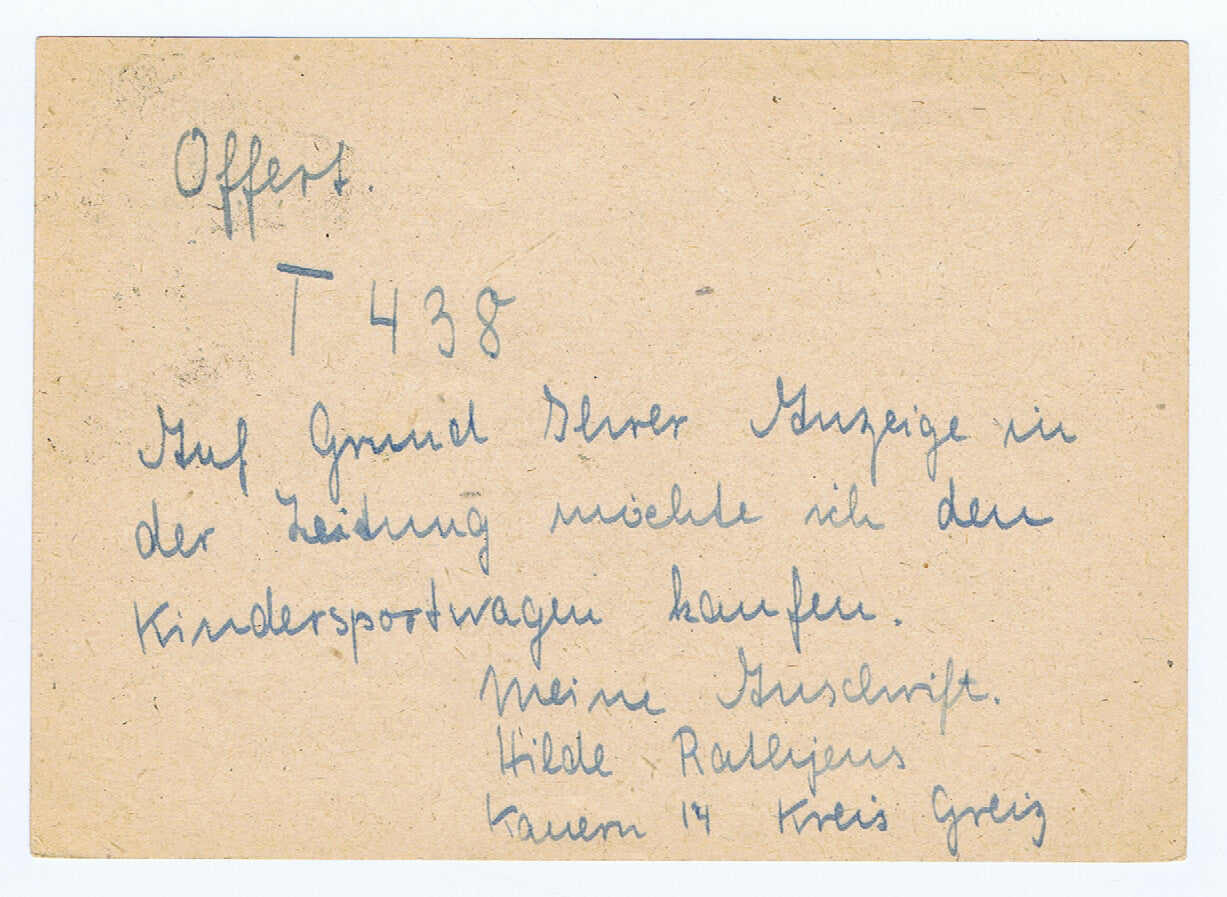 Offert.
T 438
Auf Grund Ihrer Anzeige in
der Zeitung möchte ich den
Kindersportwagen kaufen.
Meine Anschrift.
Hilde Rathjens
Kauern 14 Kreis Greiz